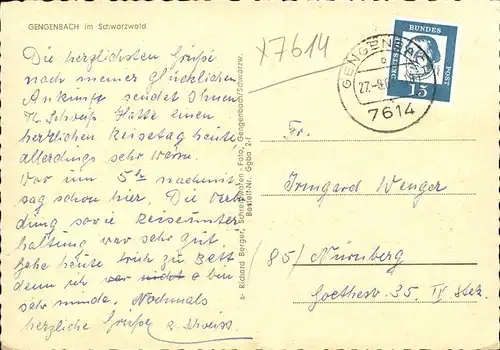 GENGENBACH im Schwarzwald
Die herzlichsten Grüße
nach meiner glücklichen
Ankunft sendet Ihnen
Hatte einen
herrlichen Reisetag heute,
allerdings sehr warm.
War um 5 h nachmit-
tag schon hier. Die Verbin-
dung sowie Reiseunter-
haltung war sehr gut.
Gehe heute früh zu Bett
denn ich war nicht bin
sehr müde. Nochmals
herzliche Grüße
s- Richard Berger, Schreibwaren - Foto, Gengenbach/Schwarzw.
Bestell-Nr. Ggba 2-f
X7614
GENGENBACH
27.-8.
7614
BUNDES
POST
15
Fr.
Irmgard Wenger
(85) Nürnberg
Goethestr. 35 IV